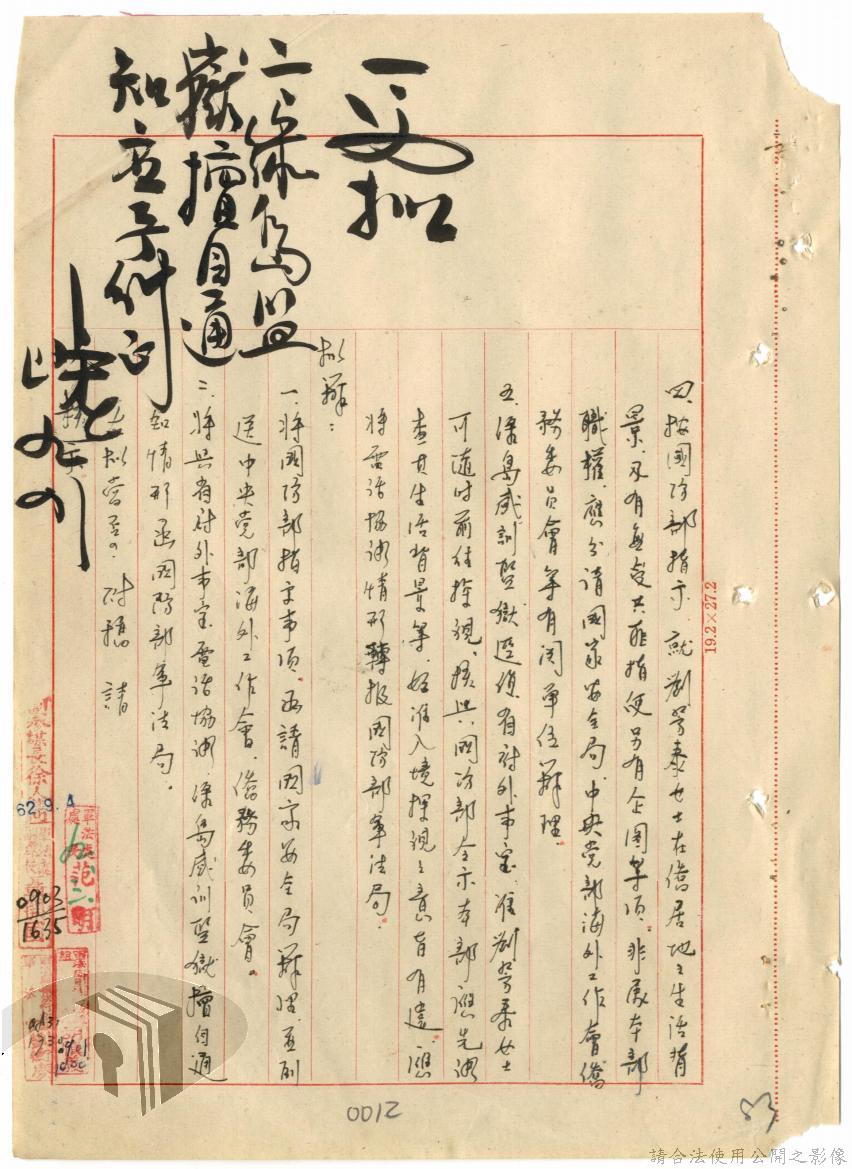 四、按國防部指示、就劉芳泰女士在僑居地之生活背
景、及有無受共匪指使另有企圖等項、非屬本部
職權、應分請國家安全局、中央党部海外工作會、僑
務委員會等有関單位辦理。
五、綠島感訓監獄逕依省府外事室准劉芳泰女士
可隨時前往探視、核與國防部令示本部應先派
查其生活背景等、始准入境探視之意旨有違、應
將電話協調情形轉報國防部軍法局。
拟辦：
一、將國防部指示事項、函請國家安全局辦理並副
送中央党部海外工作會、僑務委員會。
二、將與省府外事室電話協調、綠島感訓監獄擅自通
知情形函國防部軍法局。
上拟當否？附稿 請
核示
一、如拟
二、綠島監
獄擅自通
知应予糾正
九、
62.9.4
0903
1635
0012
83
19.2×27.2
請合法使用公開之影像